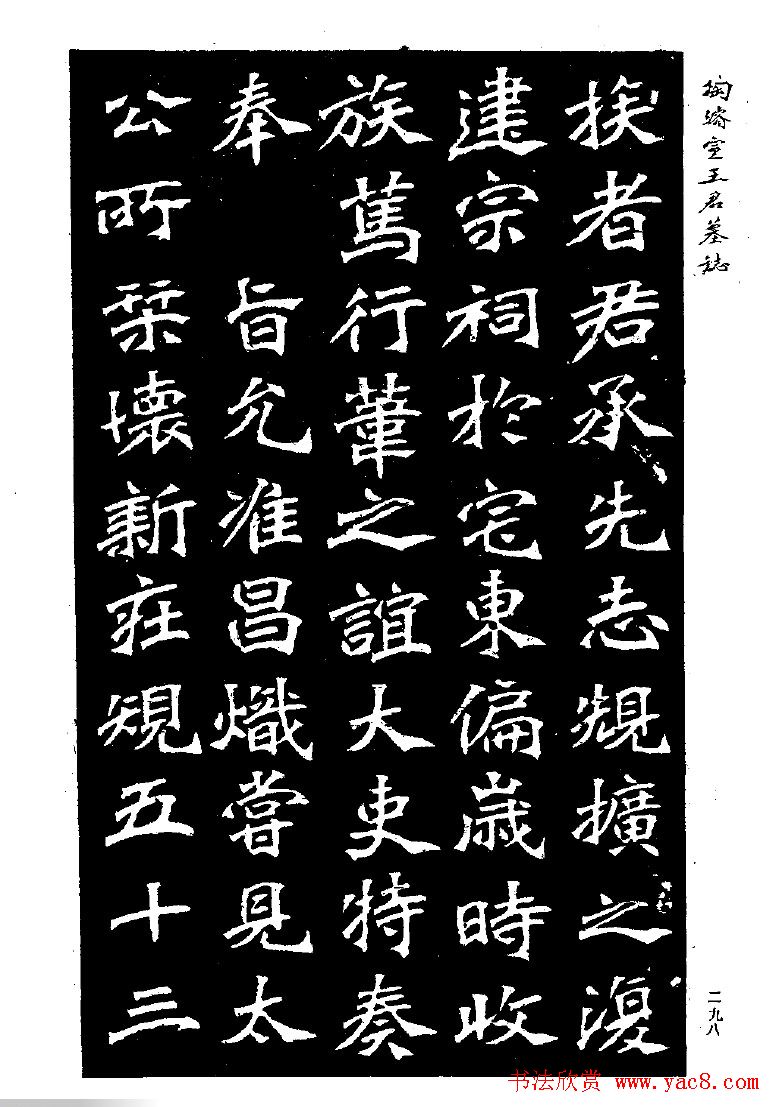 陶濬宣王君墓誌
挨者君承先志規擴之復
建宗祠於宅東偏歲時收
族篤行葦之誼大吏特奏
奉 旨允准昌熾嘗見太
公所栞懷新庄規五十三
二九八
书法欣赏 www.yac8.com